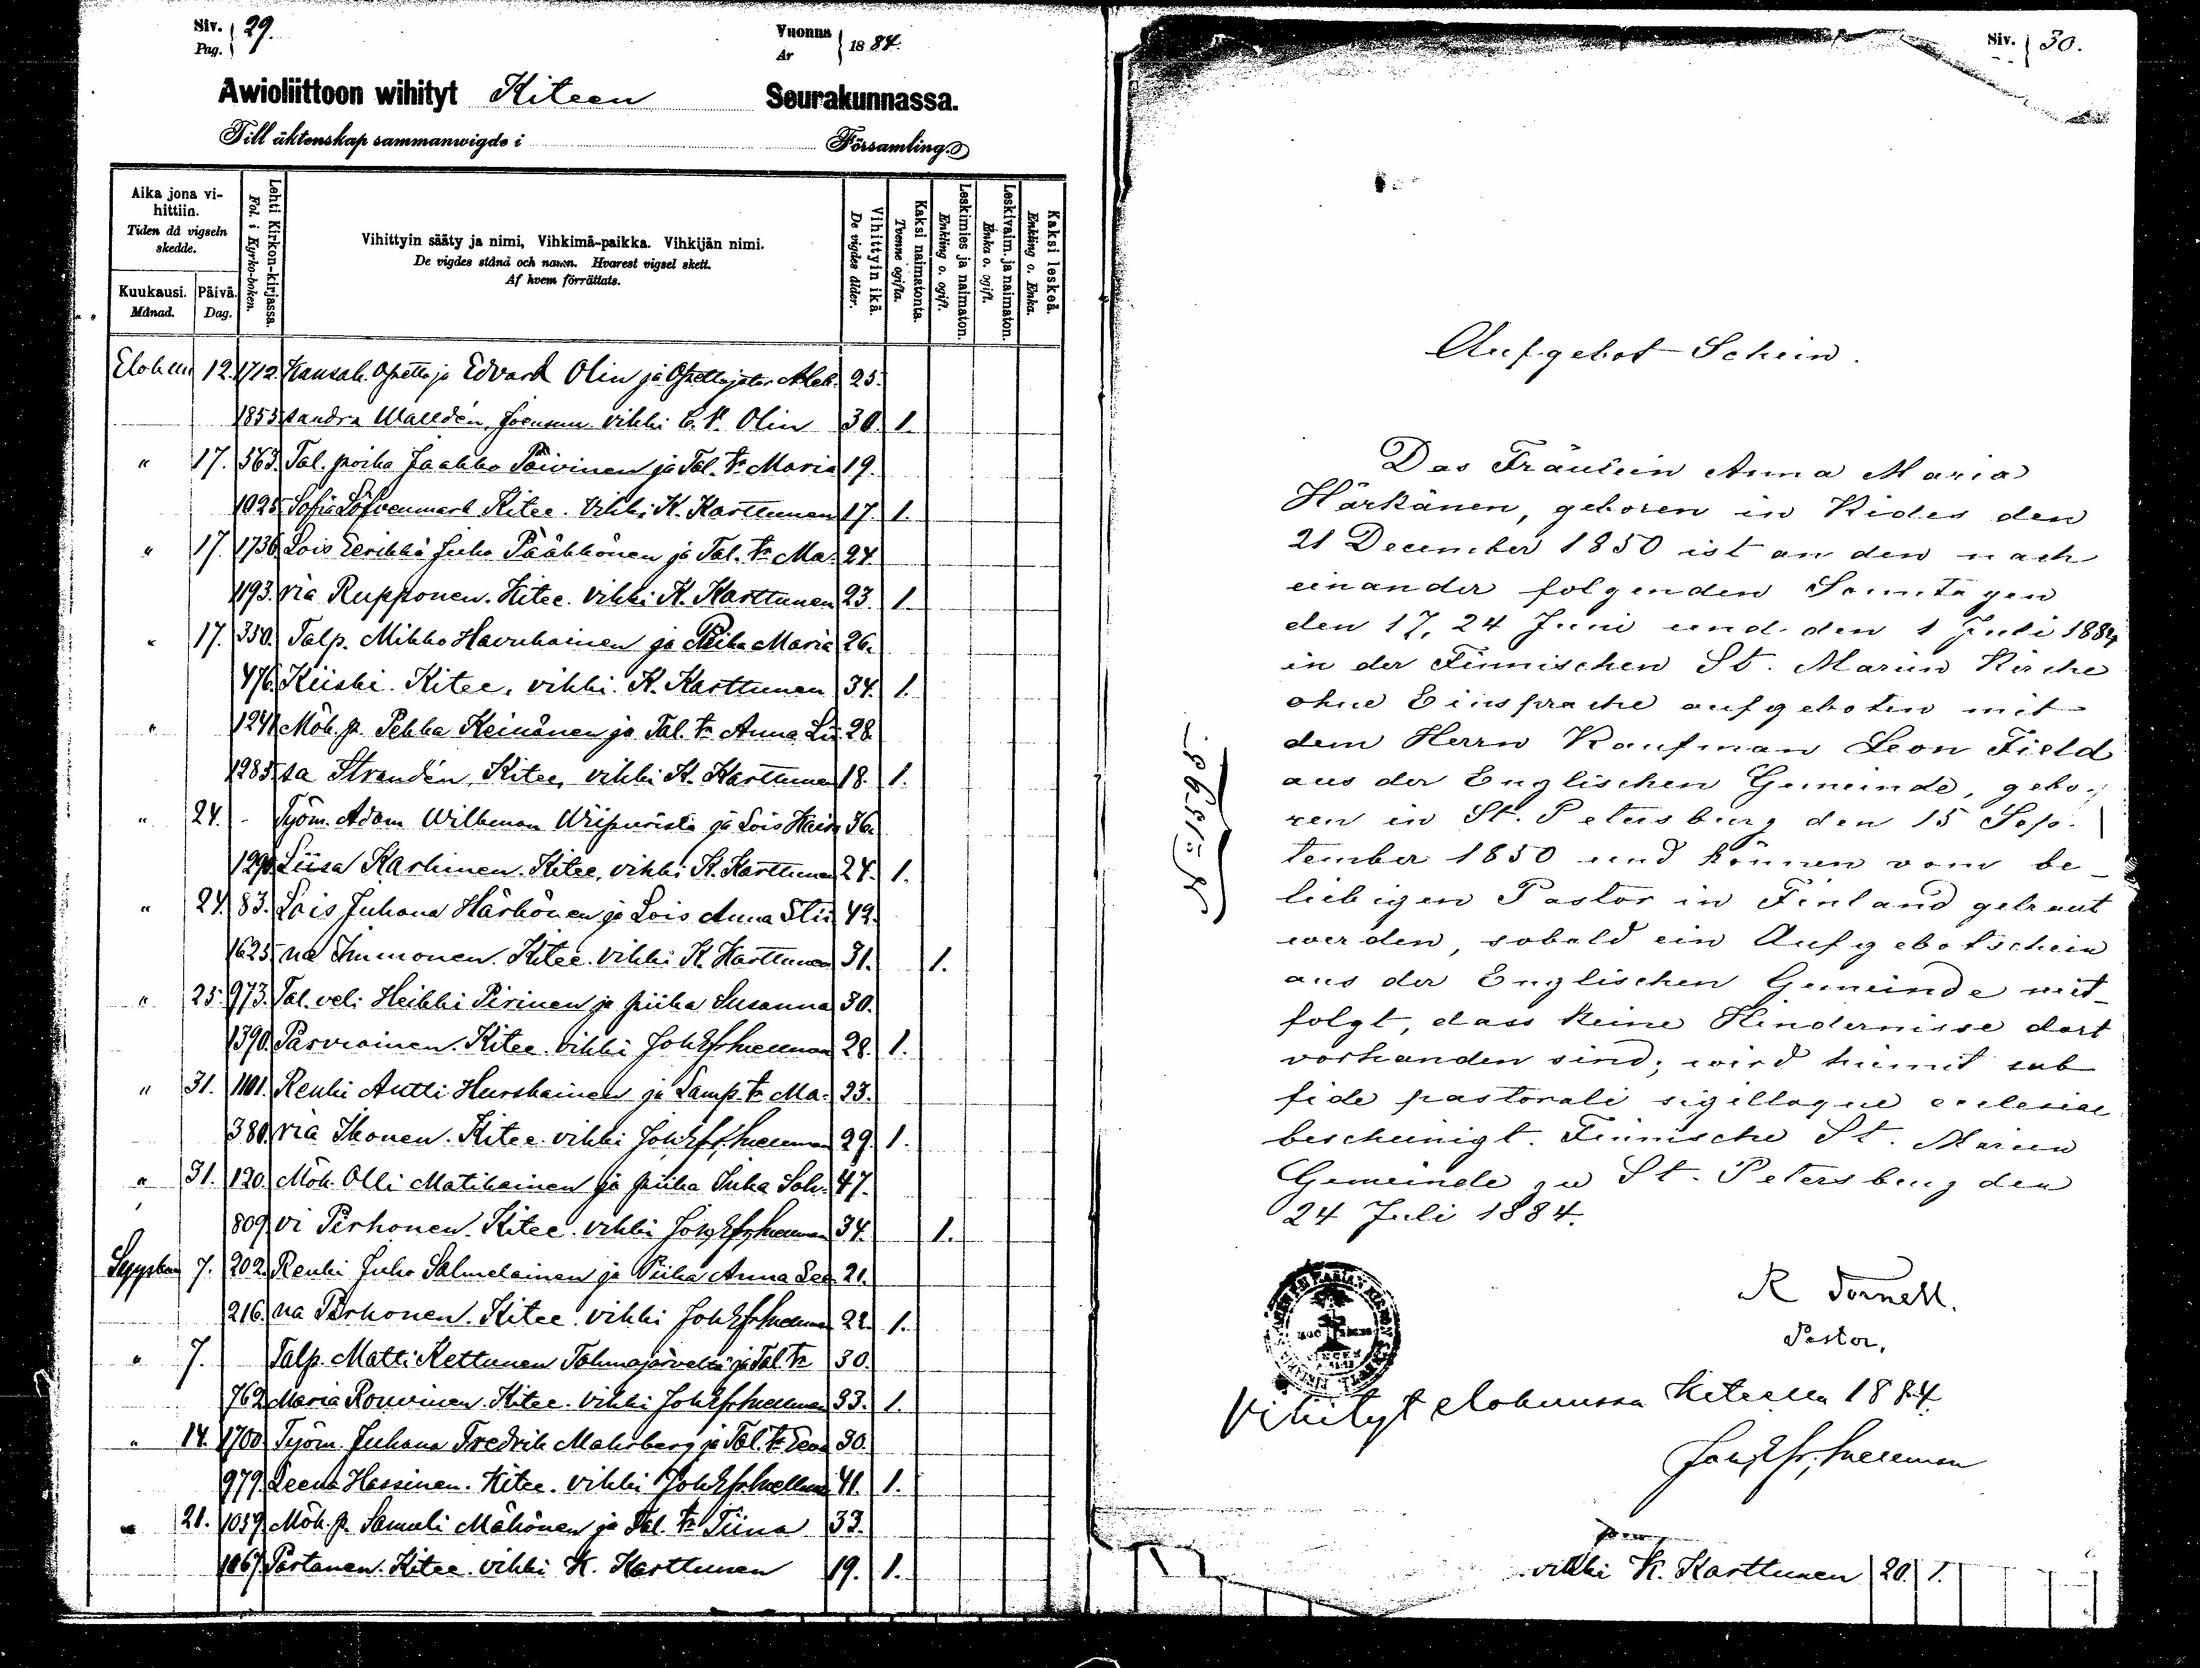 Siv. 29.
Pag.
Vuonna 1884.
År
Awioliittoon wihityt Kiteen Seurakunnassa.
Till äktenskap sammanwigde i Församling.
Aika jona vi-
hittiin.
Tiden då vigseln
skedde.
Kuukausi. Månad.
Päivä. Dag.
Lehti Kirkon-kirjassa.
Fol. i Kyrko-boken.
Vihittyin sääty ja nimi, Vihkimä-paikka. Vihkijän nimi.
De vigdes stånd och namn. Hvarest vigsel skett.
Af hvem förrättats.
Vihittyin ikä.
De vigdes ålder.
Kaksi naimatonta.
Tvenne ogifta.
Leskimies ja naimaton.
Enkling o. ogift.
Leskivaim. ja naimaton.
Enka o. ogift.
Kaksi leskeä.
Enkling o. Enka.
Elokuu 12. 1712. Kansak. Opettaja Edvard Olin ja Opettajatar Alek- 25.
1855 sandra Walldén, Joensuu vihki Olin 30. 1.
" 17. 363. Tal. poika Jaakko Päivinen ja Tal. tr Maria 19.
1025 Sofia Löfvenmark Kitee. vihki K. Karttunen 17. 1.
" 17. 1736 Lois Eerikki Juho Pääkkönen ja Tal. tr Ma- 24.
1193. ria Rupponen. Kitee. vihki K. Karttunen 23. 1.
" 17. 350. Talp. Mikko Havukainen ja Piika Maria 26.
476. Kiiski. Kitee. vihki K. Karttunen 34. 1.
" 1241 Mök. p. Pekka Keinänen ja Tal. tr Anna Lii 28
1285 sa Strandén, Kitee, vihki K. Karttunen 18. 1.
" 24. - Työm. Adam Willman Wiipurista ja Lois 36.
1290 Liisa Karhinen. Kitee, vihki K. Karttunen 24. 1.
" 24. 83. Lois Juhana Härkönen ja Lois Anna Stii 42.
1625. na Immonen. Kitee. vihki K. Karttunen 31. 1.
" 25. 973. Tal. veli Heikki Pirinen ja piika Susanna 30.
1390. Parviainen. Kitee. vihki Joh. Efr. Snellman 28. 1.
" 31. 1101. Renki Antti Hurskainen ja Lamp. tr Ma- 23.
380. ria Ikonen. Kitee. vihki Joh. Efr. Snellman 29. 1.
" 31. 120. Mök. Olli Matikainen ja piika Inka Soh- 47.
809. vi Pirhonen. Kitee. vihki Joh. Efr. Snellman 34. 1.
Syyskuu 7. 202. Renki Juho Salmelainen ja Piika Anna Lee 21.
216. na Pirhonen. Kitee. vihki Joh. Efr. Snellman 22. 1.
" 7. Talp. Matti Kettunen Tohmajärveltä ja Tal. tr 30.
762 Maria Rouvinen. Kitee. vihki Joh. Efr. Snellman 33. 1.
" 14. 1700 Työm. Juhana Fredrik Malmberg ja Tal. tr Eeva 30.
979. Leena Hassinen. Kitee. vihki Joh. Efr. Snellman 41. 1.
" 21. 1059 Mök. p. Samuli Mähönen ja Tal. tr Tiina 33.
1067. Partanen. Kitee. vihki K. Karttunen 19. 1.
Siv. 30.
Aufgebot-Schein.
Das Fräulein Anna Maria
Härkänen, geboren in Kides den
21 December 1850 ist an den nach
einander folgenden Sonntagen
den 17, 24 Juni und den 1 Juli 1884
in der Finnischen St. Marien Kirche
ohne Einsprache aufgeboten mit
dem Herrn Kaufman Leon Field
aus der Englischen Gemeinde, gebo-
ren in St. Petersburg den 15 Sep-
tember 1850 und können vom be-
liebigen Pastor in Finland getraut
werden, sobald ein Aufgebotschein
aus der Englischen Gemeinde mit-
folgt, dass keine Hindernisse dort
vorhanden sind; wird hiemit sub
fide pastorali sigilloque ecclesiae
bescheinigt. Finnische St. Marien
Gemeinde zu St. Petersburg den
24 Juli 1884.
Pastor.
Vihityt elokuussa Kiteellä 1884.
Joh. Efr. Snellman
vihki K. Karttunen 20. 1.